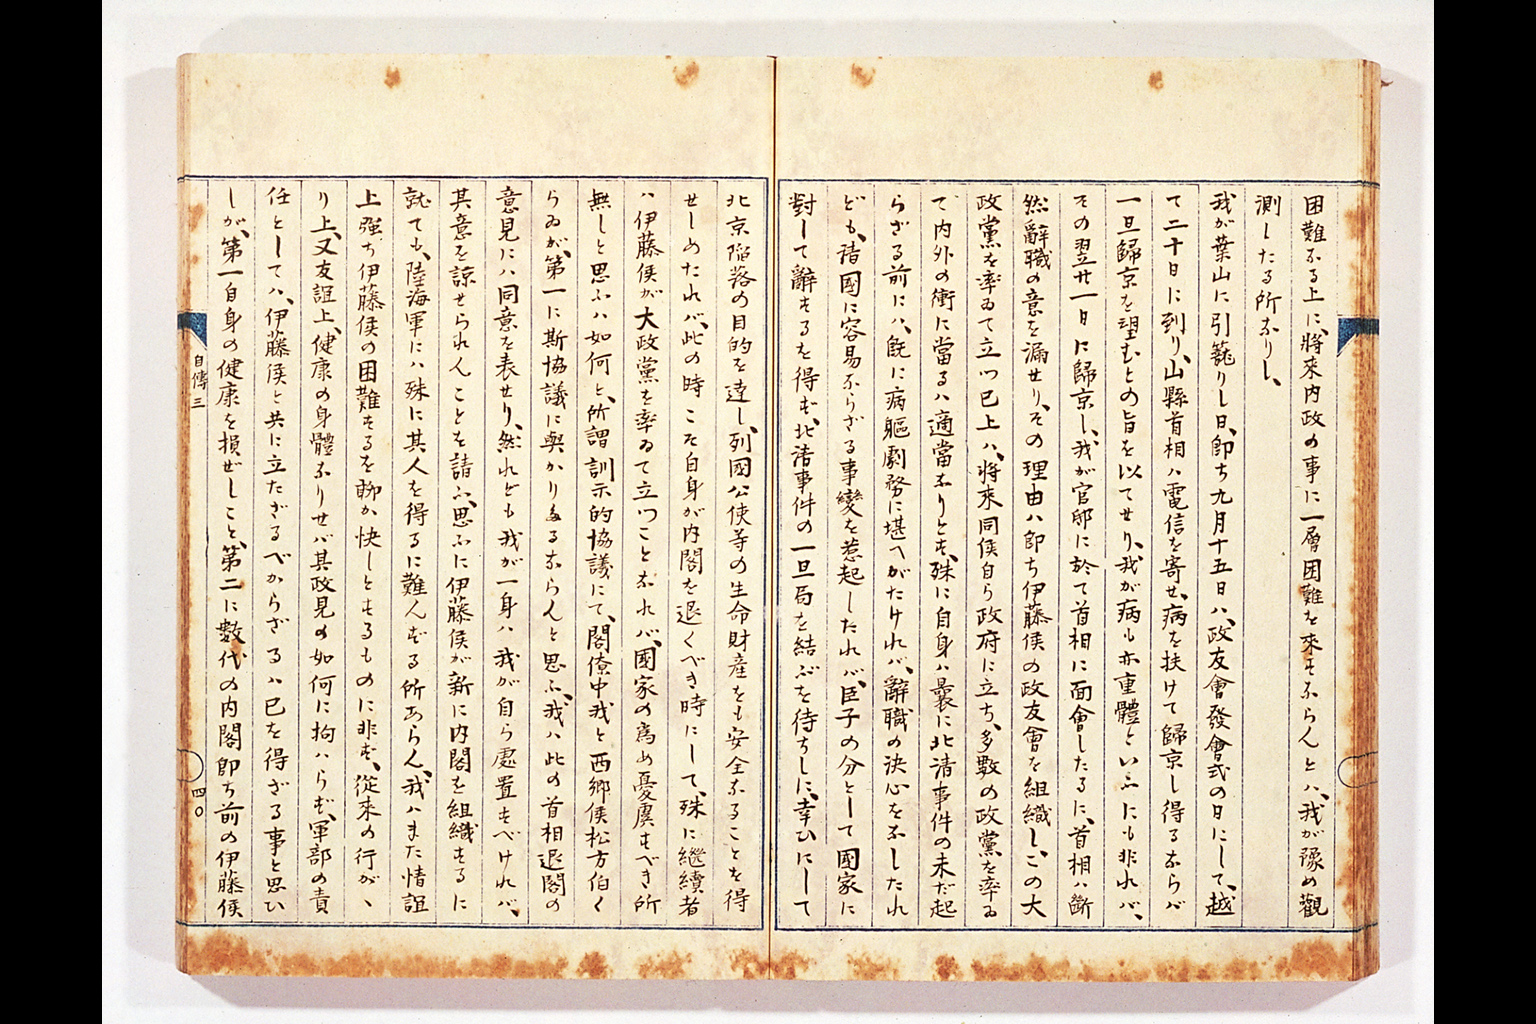 困難なる上に、將來内政の事に一層困難を來すならんとハ、我が豫め觀
測したる所なりし、
我が葉山に引籠りし日、即ち九月十五日ハ、政友會發會式の日にして、越
て二十日に到り、山縣首相ハ電信を寄せ、病を扶けて歸京し得るならバ
一旦歸京を望むとの旨を以てせり、我が病も亦重體といふにも非れバ、
その翌廿一日に歸京し、我が官邸に於て首相に面會したるに、首相ハ斷
然辭職の意を漏せり、その理由ハ即ち伊藤侯の政友會を組織し、この大
政黨を率ゐて立つ已上ハ、將來同侯自ら政府に立ち、多數の政黨を率ゐ
て内外の衝に當るハ適當なりとす、殊に自身ハ曩に北清事件の未だ起
らざる前にハ、既に病軀劇務に堪へがたけれバ、辭職の決心をなしたれ
ども、諸國に容易ならざる事變を惹起したれバ、臣子の分として國家に
對して辭するを得ず、北清事件の一旦局を結ぶを待ちしに、幸ひにして
北京陷落の目的を達し、列國公使等の生命財産をも安全なることを得
せしめたれバ、此の時こそ自身が内閣を退くべき時にして、殊に繼續者
ハ伊藤侯が大政黨を率ゐて立つことなれバ、國家の爲め憂虞すべき所
無しと思ふハ如何と、所謂訓示的協議にて、閣僚中我と西鄕侯松方伯く
らゐが、第一に斯協議に與かりたるならんと思ふ、我ハ此の首相退閣の
意見にハ同意を表せり、然れども我が一身ハ我が自ら處置すべけれバ、
其意を諒せられんことを請ふ、思ふに伊藤侯が新に内閣を組織するに
就ても、陸海軍にハ殊に其人を得るに難んずる所あらん、我ハまた情誼
上強ち伊藤侯の困難するを聊か快しとするものに非ず、從來の行がゝ
り上、又友誼上、健康の身體なりせバ其政見の如何に拘ハらず、軍部の責
任としてハ、伊藤侯と共に立たざるべからざるハ已を得ざる事と思ひ
しが、第一自身の健康を損ぜしこと、第二に數代の内閣即ち前の伊藤侯
自傳三
四〇